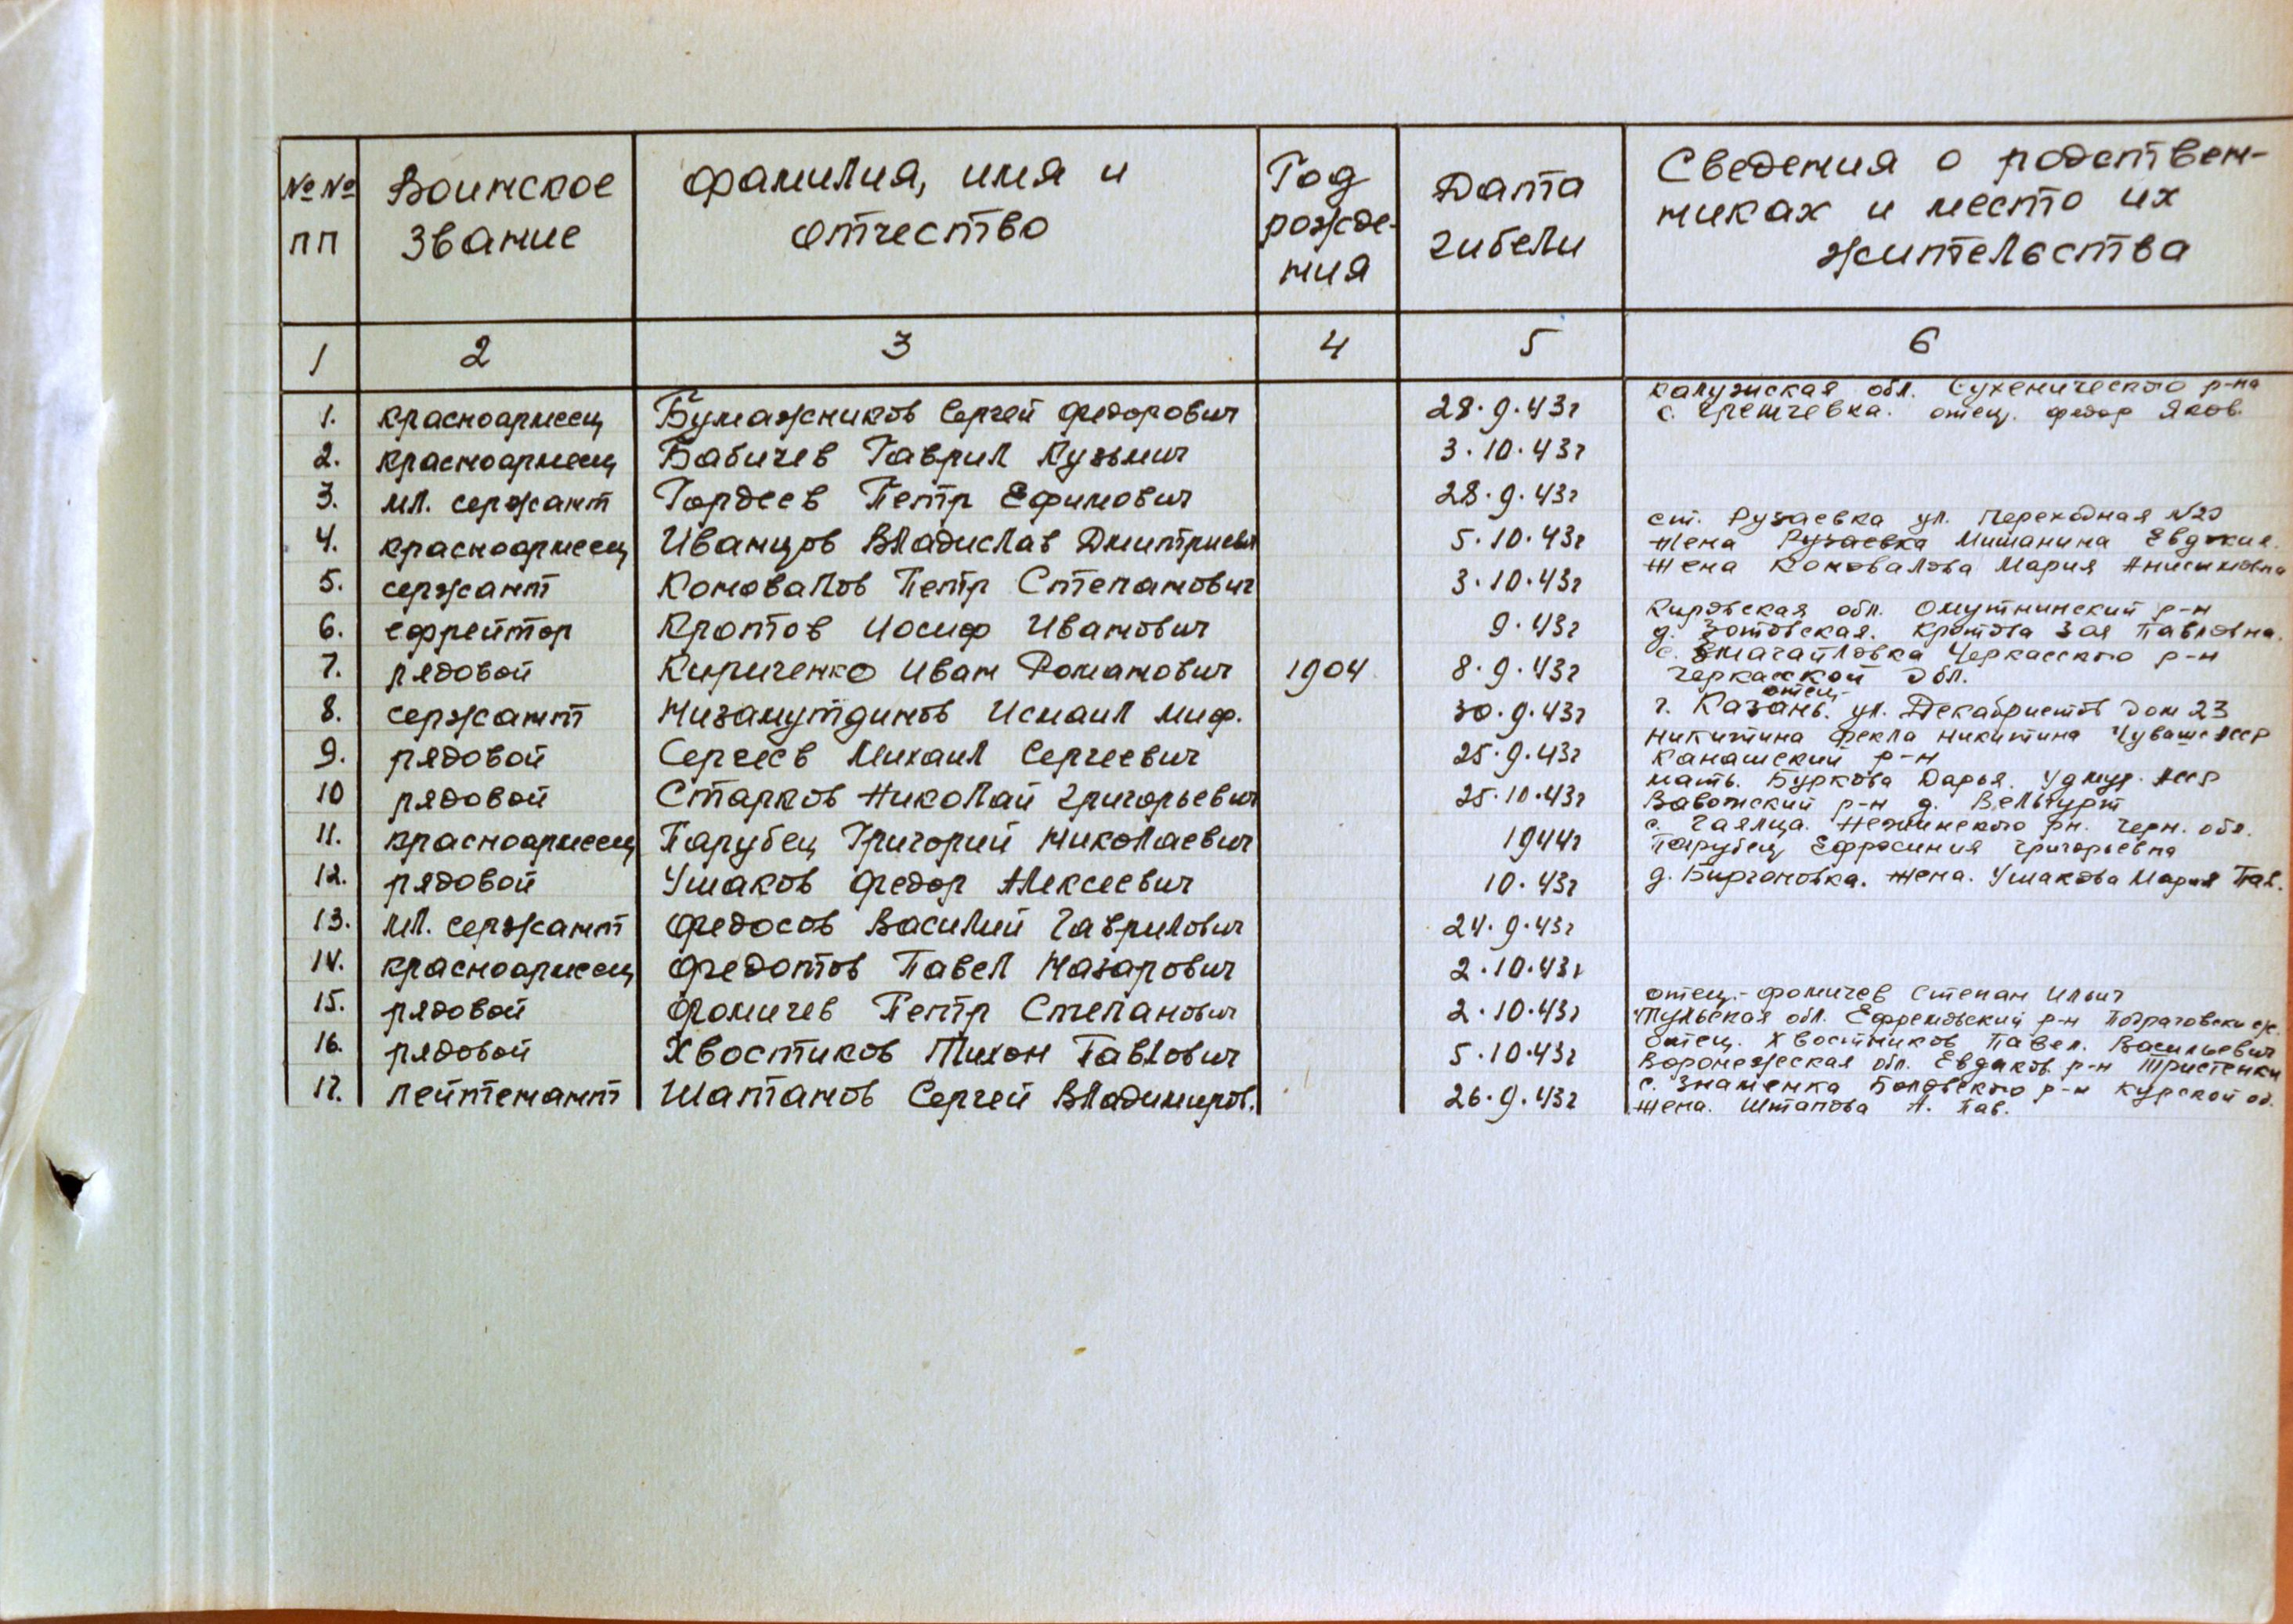 № № пп
Воинское звание
Фамилия, имя и отчество
Год рожде-ния
Дата гибели
Сведения о родствен-никах и место их жительства
1 2 3 4 5 6
1. красноармеец Бумажников Сергей Федорович 28.9.43г Калужская обл. Сухенического р-на
с. отец. Федор Яков.
2. красноармеец Бабичев Гаврил Кузьмич 3.10.43г
3. мл. сержант Гордеев Петр Ефимович 28.9.43г
4. красноармеец Иванцов Владислав Дмитриевич 5.10.43г ст. Рузаевка ул. Переходная №20
жена Рузаевка Мишанина Евдокия.
5. сержант Коновалов Петр Степанович 3.10.43г Жена Коновалова Мария Анисимовна
6. ефрейтор Кротов Иосиф Иванович 9.43г Кировская обл. Омутнинский р-н
д. Зотовская. Кротова Зоя Павловна.
7. рядовой Кириченко Иван Романович 1904 8.9.43г с. Черкасского р-н
Черкасской обл.
8. сержант Низамутдинов Исмаил Миф. 30.9.43г отец-
г. Казань. ул. Декабристов дом 23
9. рядовой Сергеев Михаил Сергеевич 25.9.43г Никитина Фекла Никитина Чуваш АССР
Канашский р-н
10 рядовой Старков Николай Григорьевич 25.10.43г мать. Буркова Дарья. Удмур. АССР
Вавожский р-н д.
11. красноармеец Парубец Григорий Николаевич 1944г с. Нежинского рн. Черн. обл.
Парубец Ефросиния Григорьевна
12. рядовой Ушаков Федор Алексеевич 10.43г д. жена. Ушакова Мария Пав.
13. мл. сержант Федосов Василий Гаврилович 24.9.43г
14. красноармеец Федотов Павел Назарович 2.10.43г
15. рядовой Фомичев Петр Степанович 2.10.43г отец.-Фомичев Степан Ильич
Тульская обл. Ефремовский р-н
16. рядовой Хвостиков Тихон Павлович 5.10.43г отец. Хвостиков Павел. Васильевич
Воронежеская обл. Евдаков. р-н Тристенки
17. лейтенант Шатанов Сергей Владимиров. 26.9.43г с. Знаменка р-н Курской об.
жена. А. Пав.